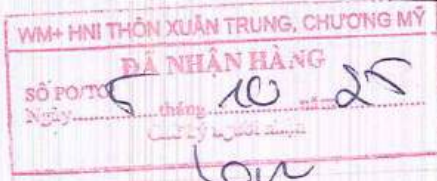 WM+ HNI THÔN XUÂN TRUNG, CHƯƠNG MỸ
ĐÃ NHẬN HÀNG
SỐ PO/TO
Ngày 5 tháng 10 năm 25
Chữ ký người nhận